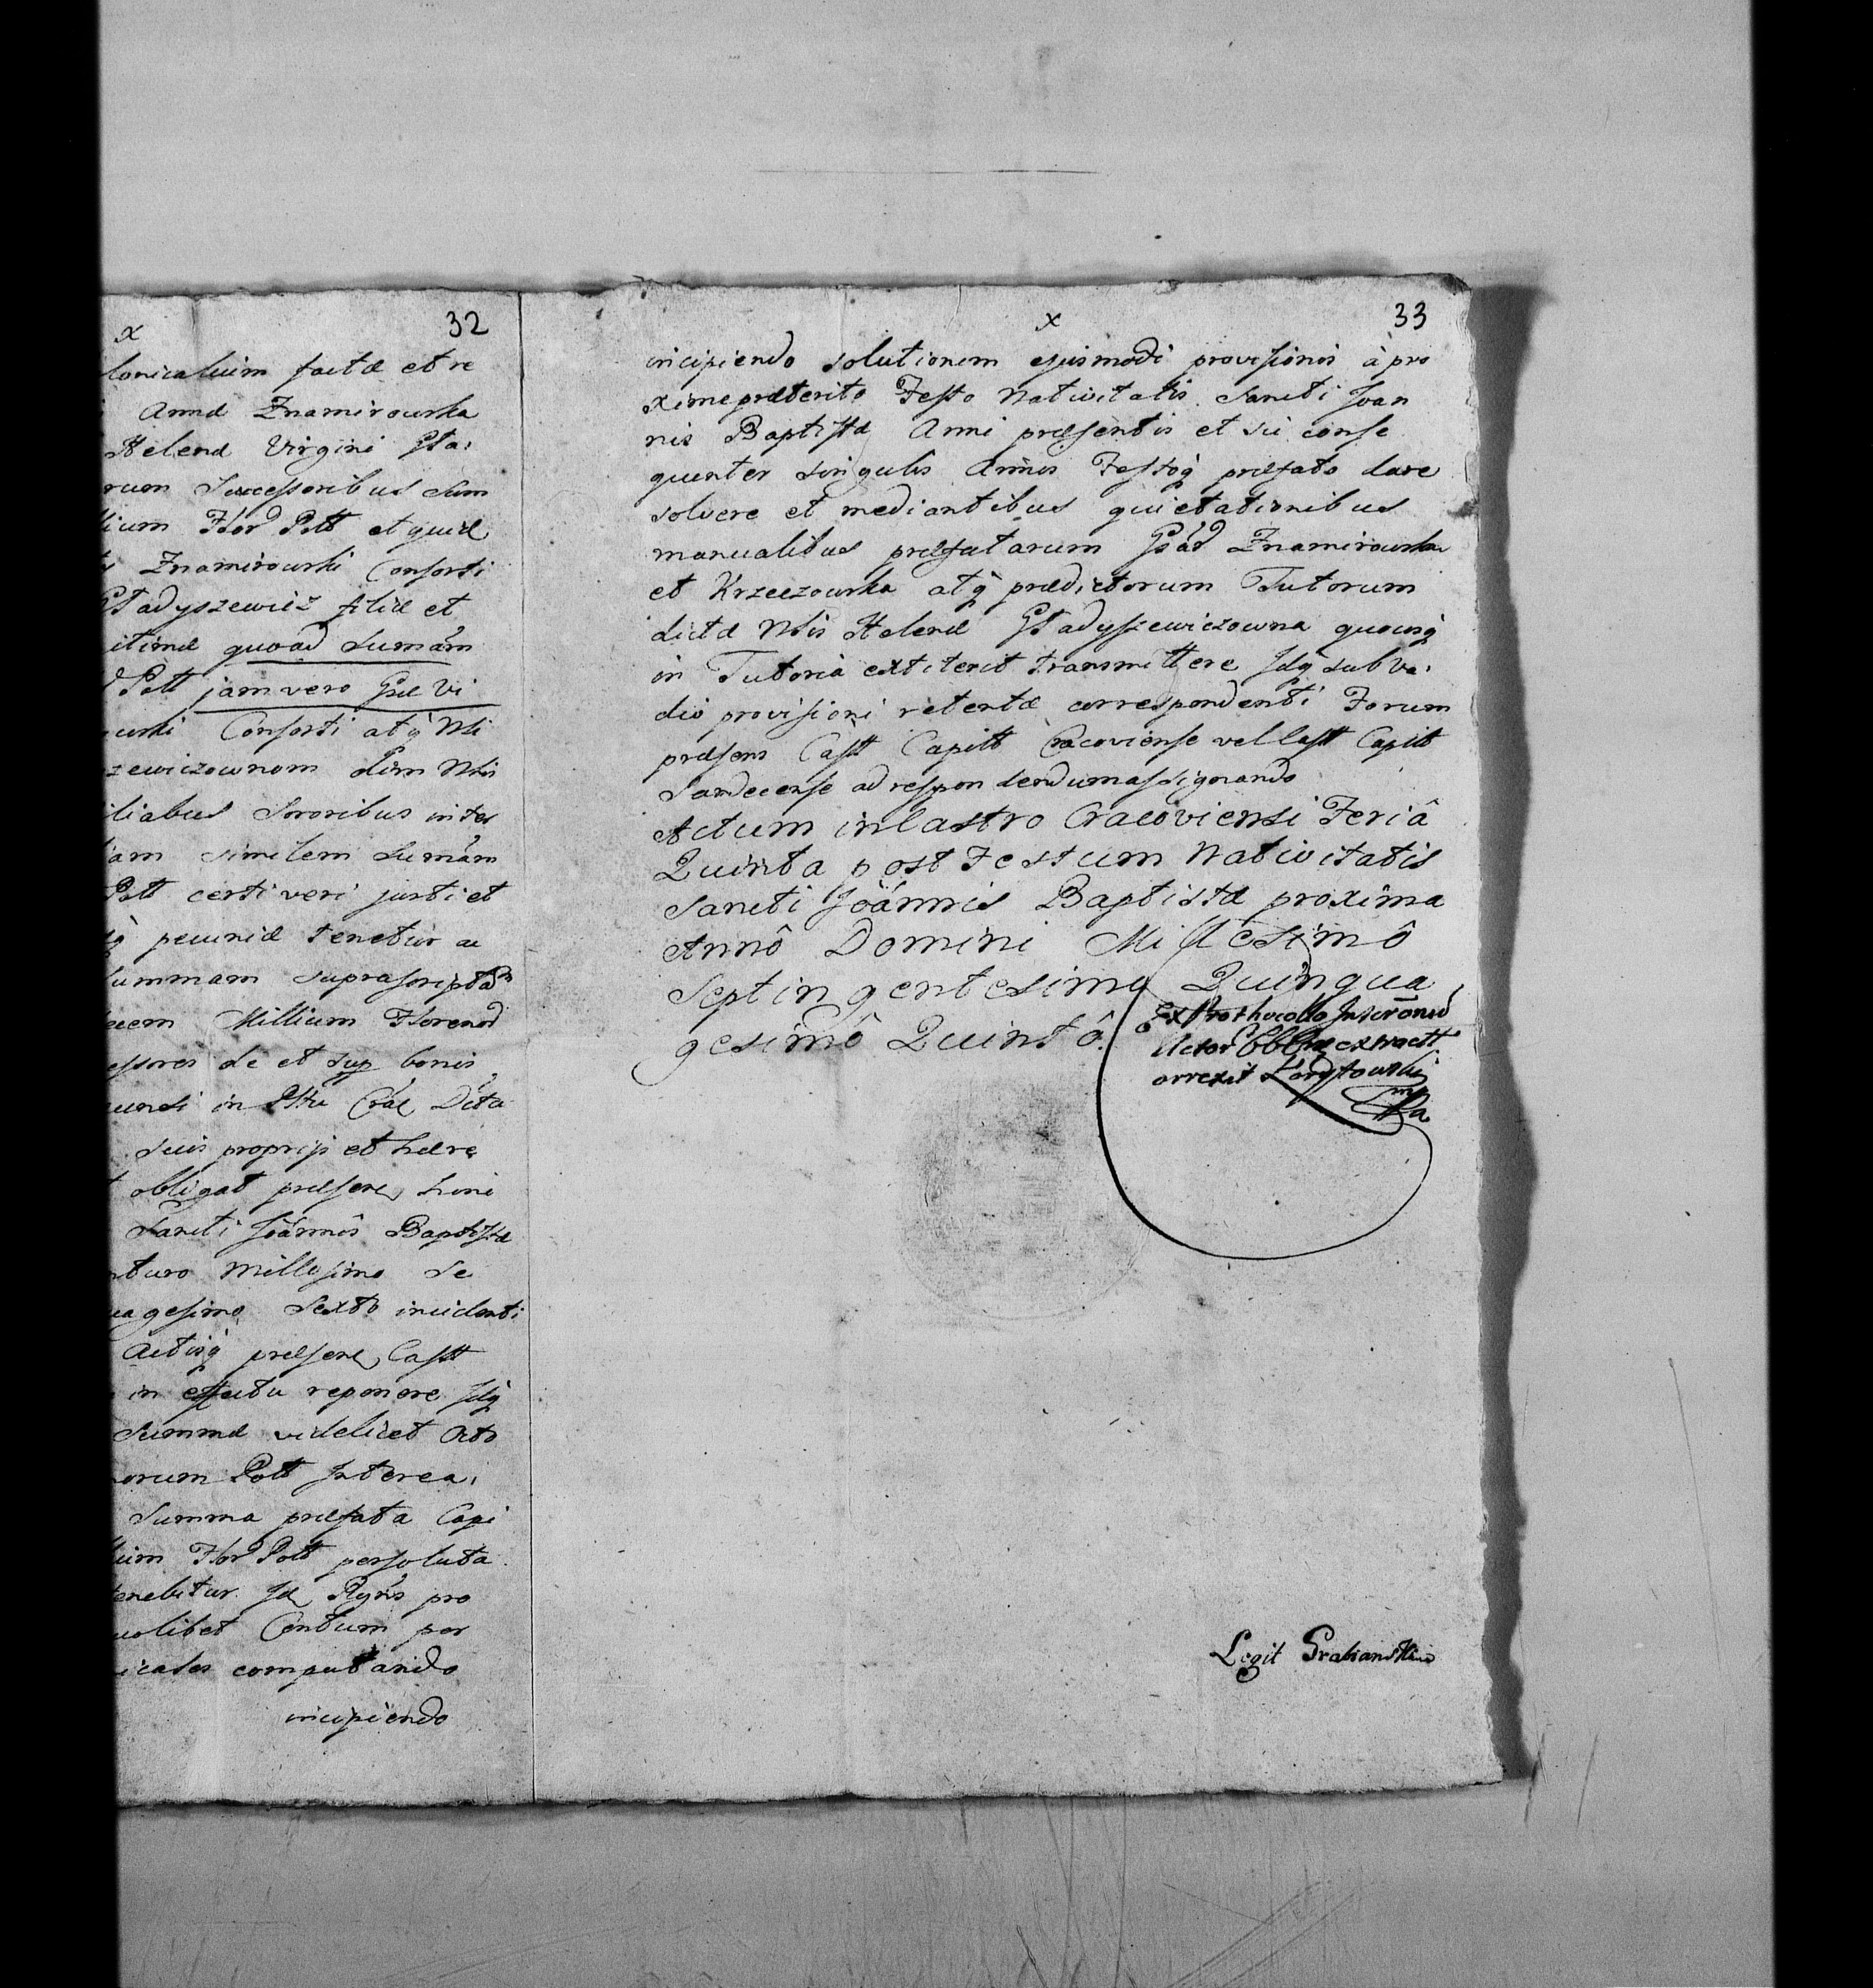 x 32
lonicalium factæ et re
Annæ Znamirowska
Helenæ Virgini Gła:
rum Successoribus Sum
lium Flor Poll et quid
Znamirowski Consorti
Gładyszewicz filiæ et
itimæ quoad Sumam
Poll jam vero Gsæ Vi
wski Consorti atq Nli
zewiczownom olim Nlis
iliabus Sororibus inter
iam similem Sumam
Poll certi veri justi et
pecuniæ tenetur ac
Summam suprascriptam
ecem Millium Florenor
essores de et sup bonis
undi in Pttu Crac Dicta
suis proprijs et hære
obligat præsens, huni
Sancti Joannis Baptistæ
turo Millesimo Se
uagesimo Sexto incidenti
Actisq præsen, Castr
in effectu reponere Idq
Summæ videlicet Octo
norum Poll Interea,
Summa præfata Capi
lium Flor Poll persoluta
tenebitur Id, Rgns pro
uolibet Centum per
icales computando
incipiendo
x 33
incipiendo solutionem ejusmodi provisionis à pro
xime præterito Festo Nativitatis Sancti Joan
nis Baptistæ Anni præsentis et sic conse
quenter singulis Annis Festoq præfato dare
solvere et mediantibus quietationibus
manualibus præfatarum Gsar Znamirowska
et Krzeczowska atq prædictorum Tutorum
dictæ Nlis Helenæ Gładyszewiczowna quousq
in Tutoria extiterit transmittere Idq sub va,
dio provisioni retentæ correspondenti Forum
præsens Castr Capitt Cracoviense vel Castr Capitt
Sandecense ad respondendum assignando
Actum in Castro Cracoviensi Feriâ
Quinta post Festum Nativitatis
Sancti Joannis Baptistæ proxima
Annô Domini Millesimô
Septingentesimo Quinqua
gesimô Quintô.
Ex Prothocollo Inscronu
Actor Obblae extractt
orrexit Kordytowski
mpa
Legit Grabianski